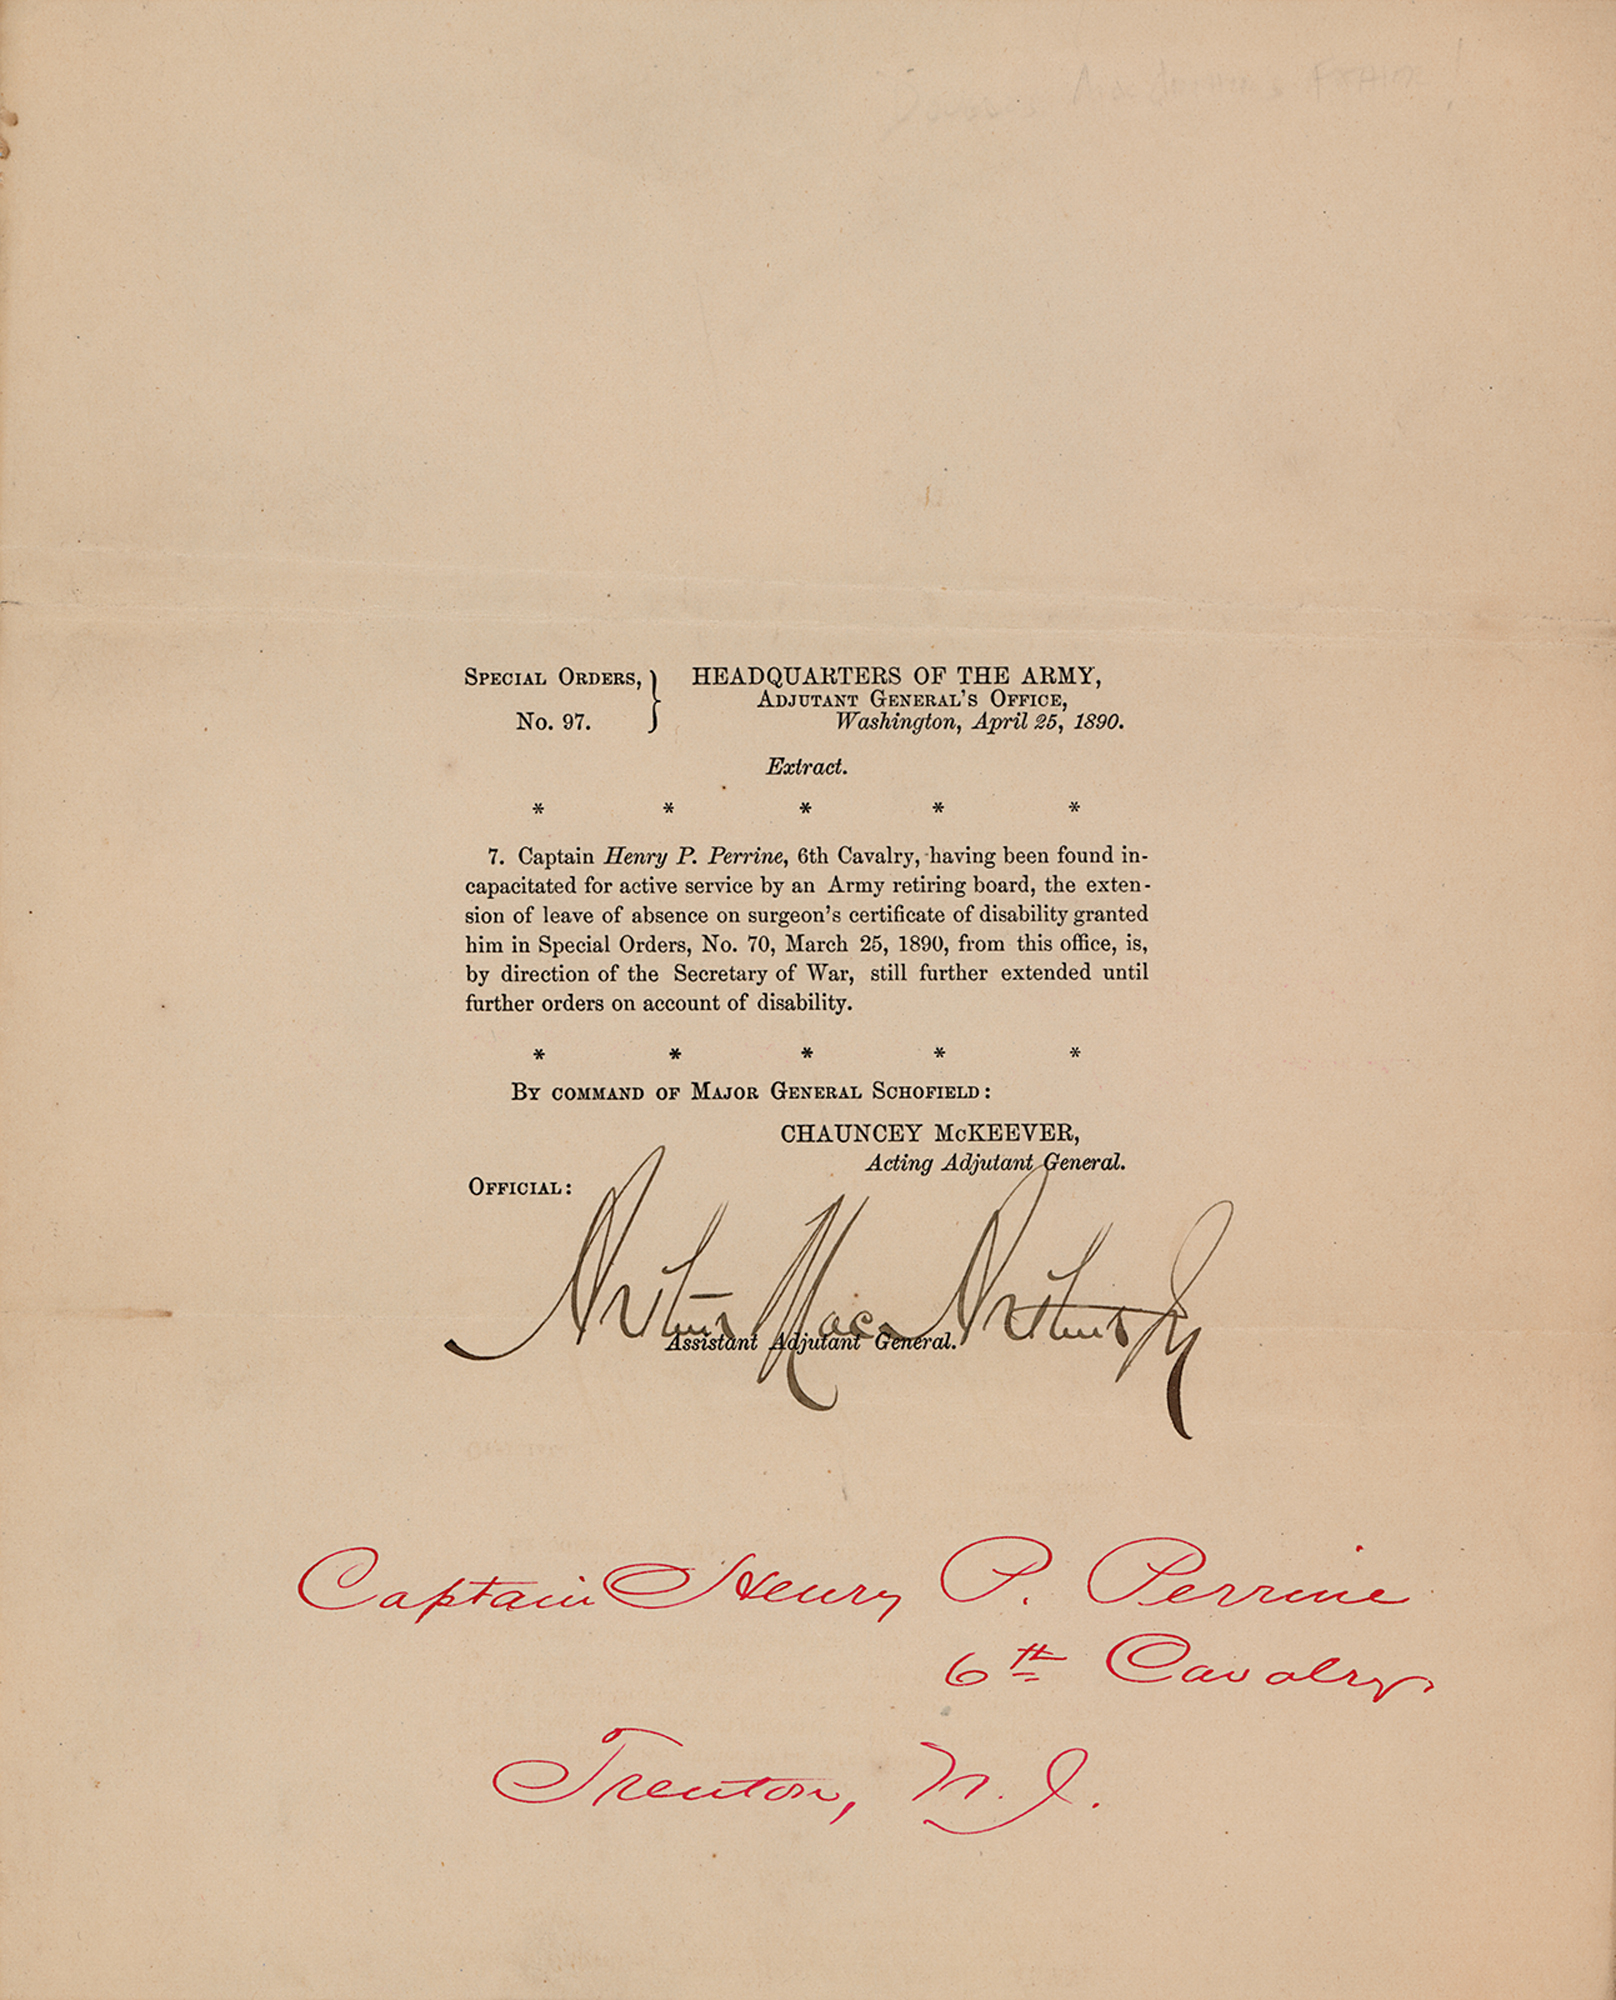 Douglas MacArthur's Father!
SPECIAL ORDERS, } HEADQUARTERS OF THE ARMY,
ADJUTANT GENERAL'S OFFICE,
No. 97. Washington, April 25, 1890.
Extract.
* * * * *
7. Captain Henry P. Perrine, 6th Cavalry, having been found in-
capacitated for active service by an Army retiring board, the exten-
sion of leave of absence on surgeon's certificate of disability granted
him in Special Orders, No. 70, March 25, 1890, from this office, is,
by direction of the Secretary of War, still further extended until
further orders on account of disability.
* * * * *
BY COMMAND OF MAJOR GENERAL SCHOFIELD:
CHAUNCEY McKEEVER,
Acting Adjutant General.
OFFICIAL:
Arthur MacArthur Jr
Assistant Adjutant General.
Captain Henry P. Perrine
6th Cavalry
Trenton, N. J.